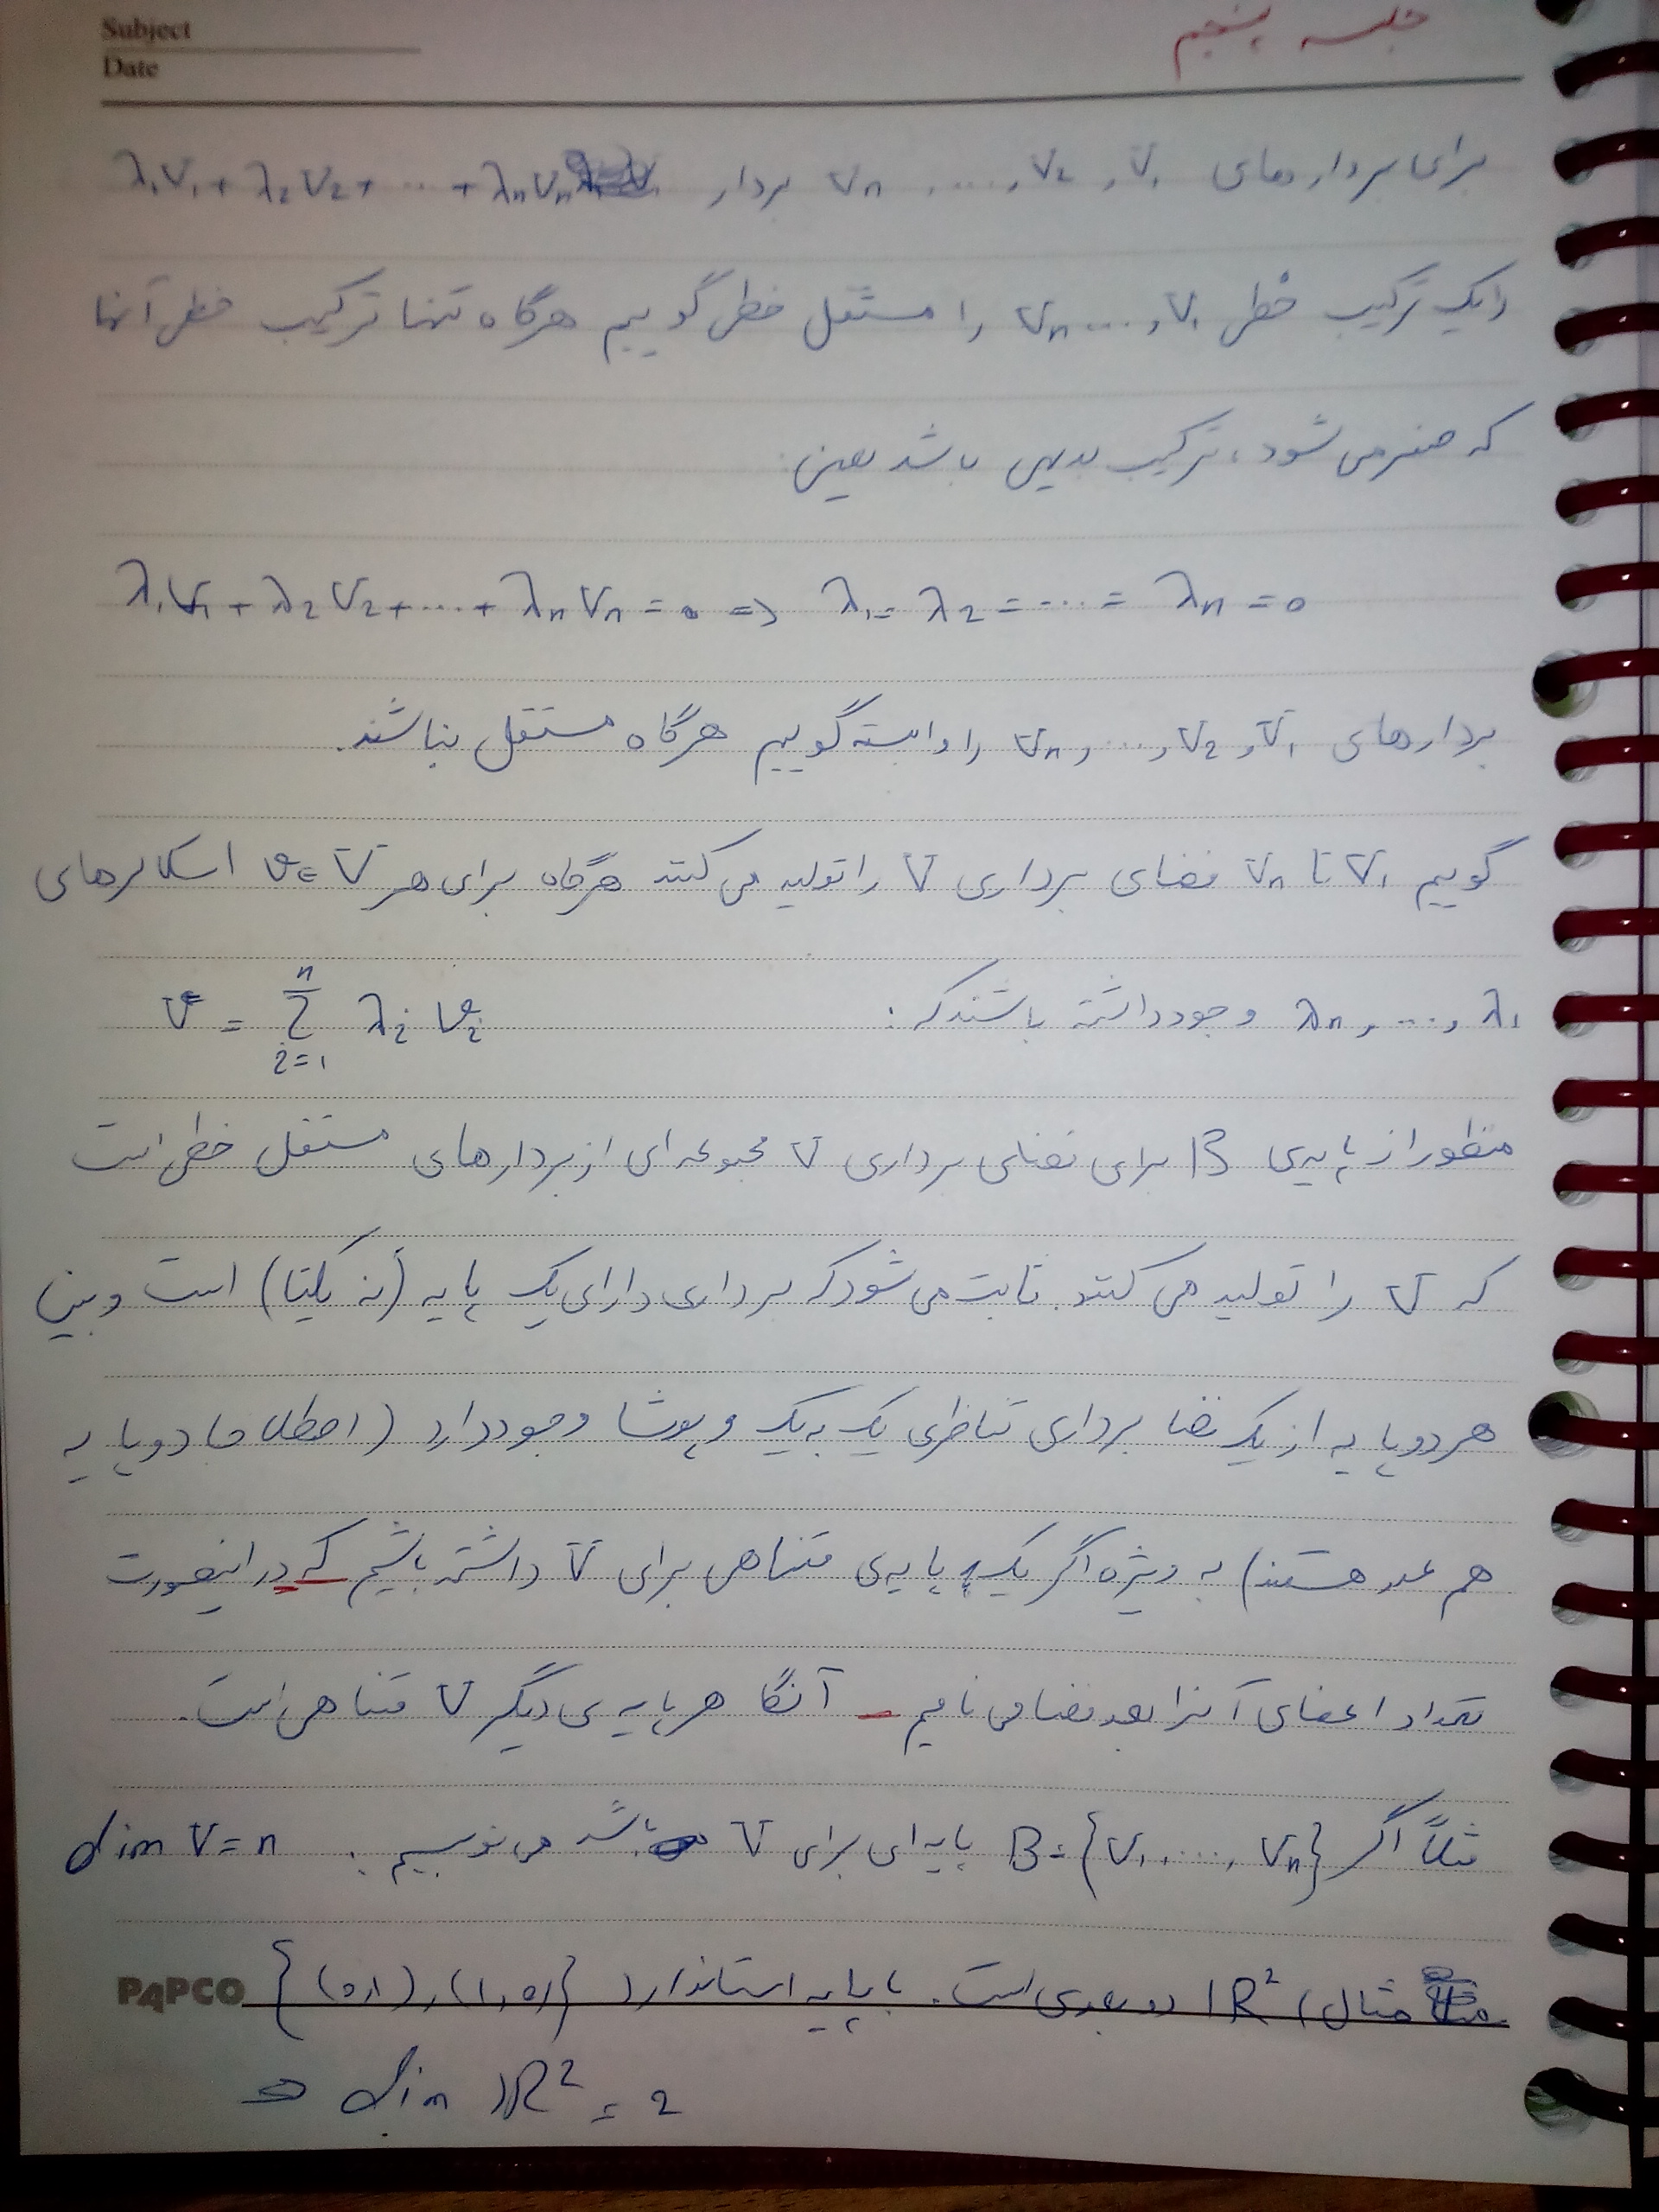 Subject
Date
جلسه پنجم
برای بردارهای v₁, v₂, ..., vₙ بردار λ₁v₁ + λ₂v₂ + ... + λₙvₙ
را یک ترکیب خطی v₁, ..., vₙ را مستقل خطی گوییم هرگاه تنها ترکیب خطی آنها
که صفر می شود، ترکیب بدیهی باشد یعنی:
λ₁v₁ + λ₂v₂ + ... + λₙvₙ = 0 => λ₁ = λ₂ = ... = λₙ = 0
بردارهای v₁, v₂, ..., vₙ را وابسته گوییم هرگاه مستقل نباشند.
گوییم v₁ تا vₙ فضای برداری V را تولید می کنند هرگاه برای هر v ∈ V اسکالرهای
λ₁, ..., λₙ وجود داشته باشند که: v = Σⁿᵢ₌₁ λᵢ vᵢ
منظور از پایه‌ی B برای فضای برداری V مجموعه ای از بردارهای مستقل خطی است
که V را تولید می کنند. ثابت می شود که برداری دارای یک پایه (نه یکتا) است و بین
هر دو پایه از یک فضا برداری تناظری یک به یک و پوشا وجود دارد (اصطلاحا دو پایه
هم عدد هستند) به ویژه اگر یک پایه ی متناهی برای V داشته باشیم که در اینصورت
تعداد اعضای آنرا بعد فضا می نامیم - آنگا هر پایه ی دیگر V متناهی است.
مثلاً اگر B = {v₁, ..., vₙ} پایه ای برای V باشد می نویسیم: dim V = n
مثال) ℝ² دو بعدی است. با پایه استاندارد {(1,0), (0,1)}
PAPCO
=> dim ℝ² = 2